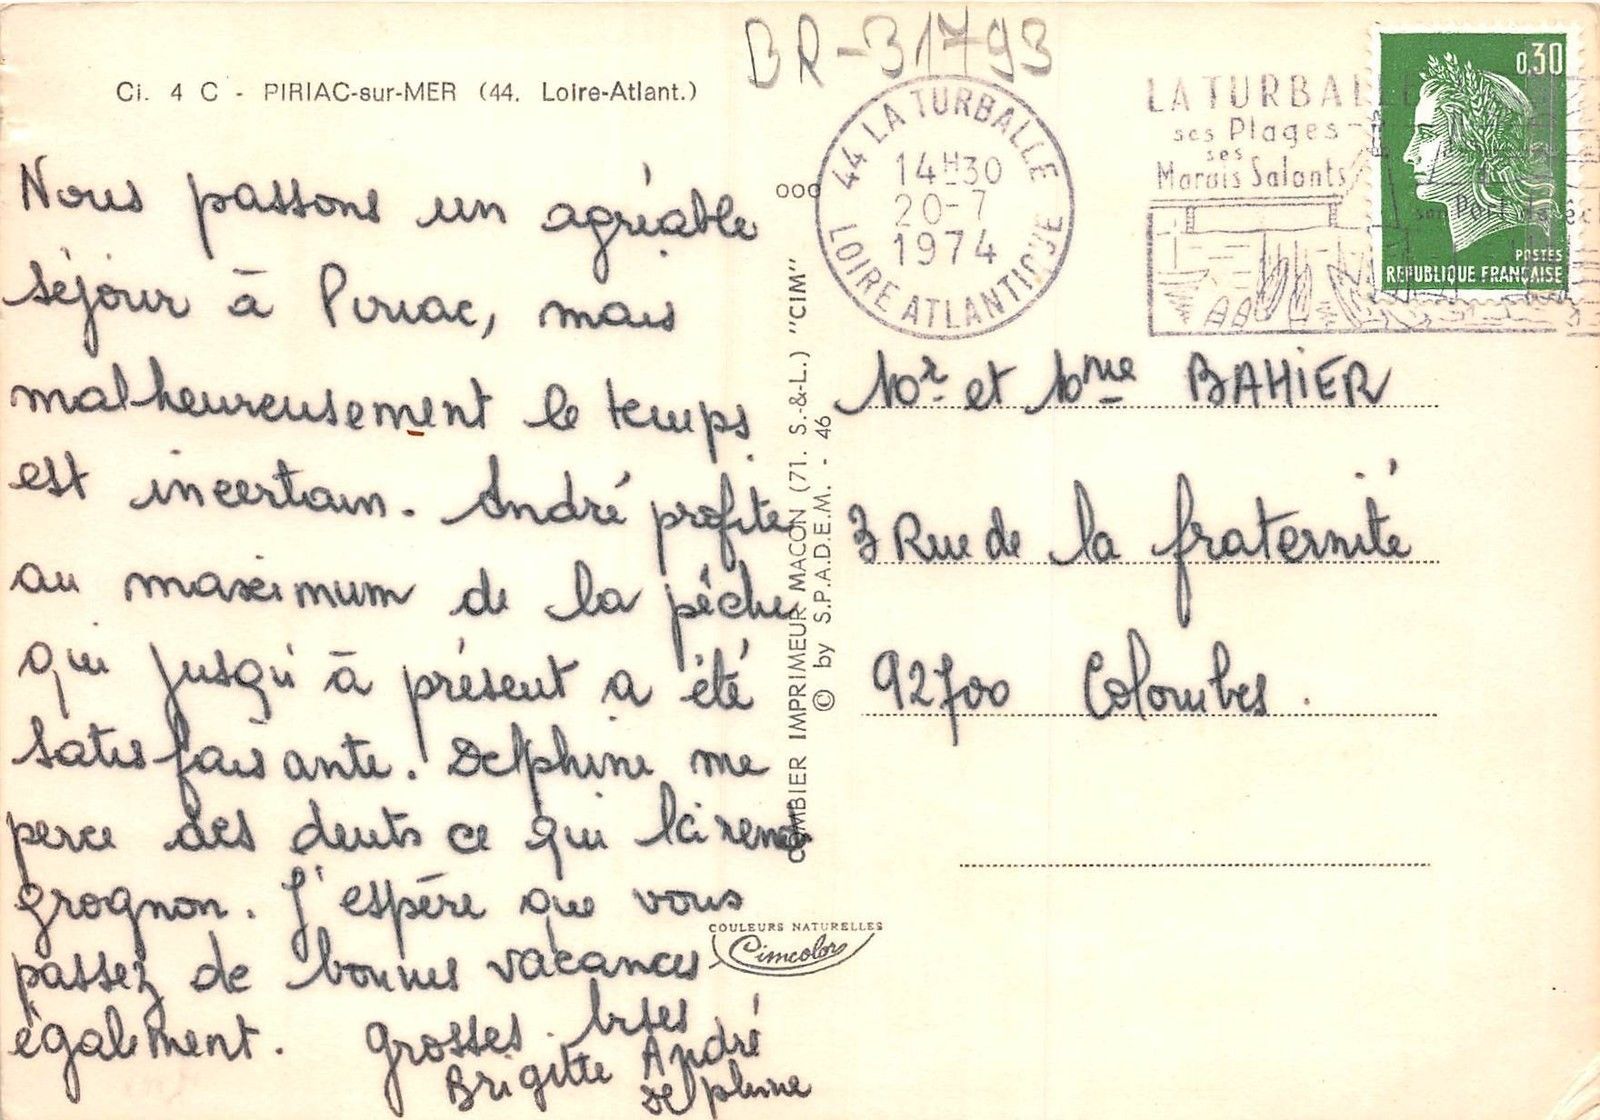 BR-31793
Ci. 4 C - PIRIAC-sur-MER (44. Loire-Atlant.)
Nous passons un agréable
séjour à Piriac, mais
malheureusement le temps
est incertain. André profite
au maximum de la pêche
qui jusqu'à présent a été
satisfaisante. Delphine me
perce des dents ce qui la rend
grognon. J'espère que vous
passez de bonnes vacances
également. Grosses bises
Brigitte André
Delphine
44 LA TURBALLE
14H30
20-7
1974
LOIRE ATLANTIQUE
LA TURBALLE
ses Plages
ses
Marais Salants
son Port de
0,30
POSTES
REPUBLIQUE FRANÇAISE
Mr et Mme BAHIER
3 Rue de la fraternité
92700 Colombes.
COMBIER IMPRIMEUR MACON (71. S.-&-L.) "CIM"
© by S.P.A.D.E.M. - 46
COULEURS NATURELLES
Cimcolor